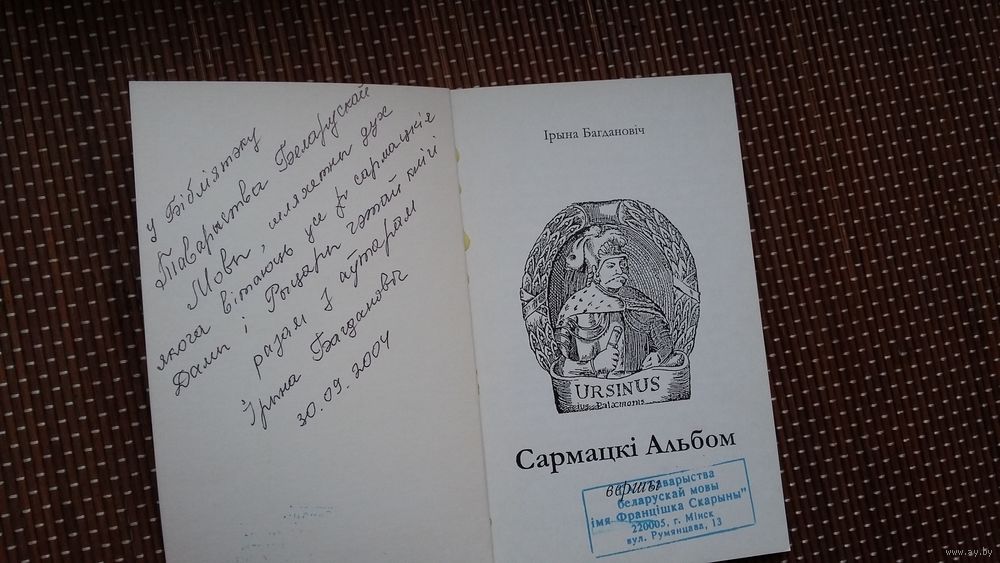 у Бібліятэку
Таварыства Беларускай
Мовы, шляхетны дух
якога вітаюць усе сармацкія
Дамы і Рыцары гэтай кнігі
разам з аўтарам
Ірына Багдановіч
30.09.2004
Ірына Багдановіч
URSINUS
Palæmonis
Сармацкі Альбом
вершы
Таварыства
беларускай мовы
імя Францішка Скарыны"
220005, г. Мінск
вул. Румянцава, 13
www.ay.by